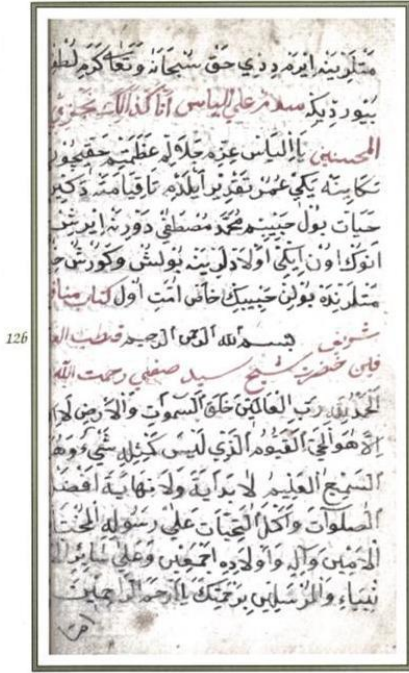 متلرينه ايردم ديدي حق سبحانه وتعالى كرم لطف
بيورديكه سلام على الياس انا كذالك نجزي
المحسنين يا الياس عزم جلالم عظمتم حقيچون
سكا يته يكي عمر تقدير ايلدم تا قيامته دكين
حيات بول حبيبيم محمد مصطفى دورنه ايرش
انوك اون ايكي اولادلرينه بولش وكورش
متلرنده بولن حبيبيك خاص امت اول كتاب مناقب
شريف بسم الله الرحمن الرحيم قطب
حضرت شيخ سيد صفي رحمت الله
الحمد لله رب العالمين خلق السموات والارض لا
الا هو الحي القيوم الذي ليس كمثله شيء وهو
السميع العليم لا بداية ولا نهاية افضل
الصلوات واكمل التحيات على رسوله المجتبا
الامين وآله واولاده اجمعين وعلى سائر الا
نبياء والمرسلين برحمتك يا ارحم الراحمين
126